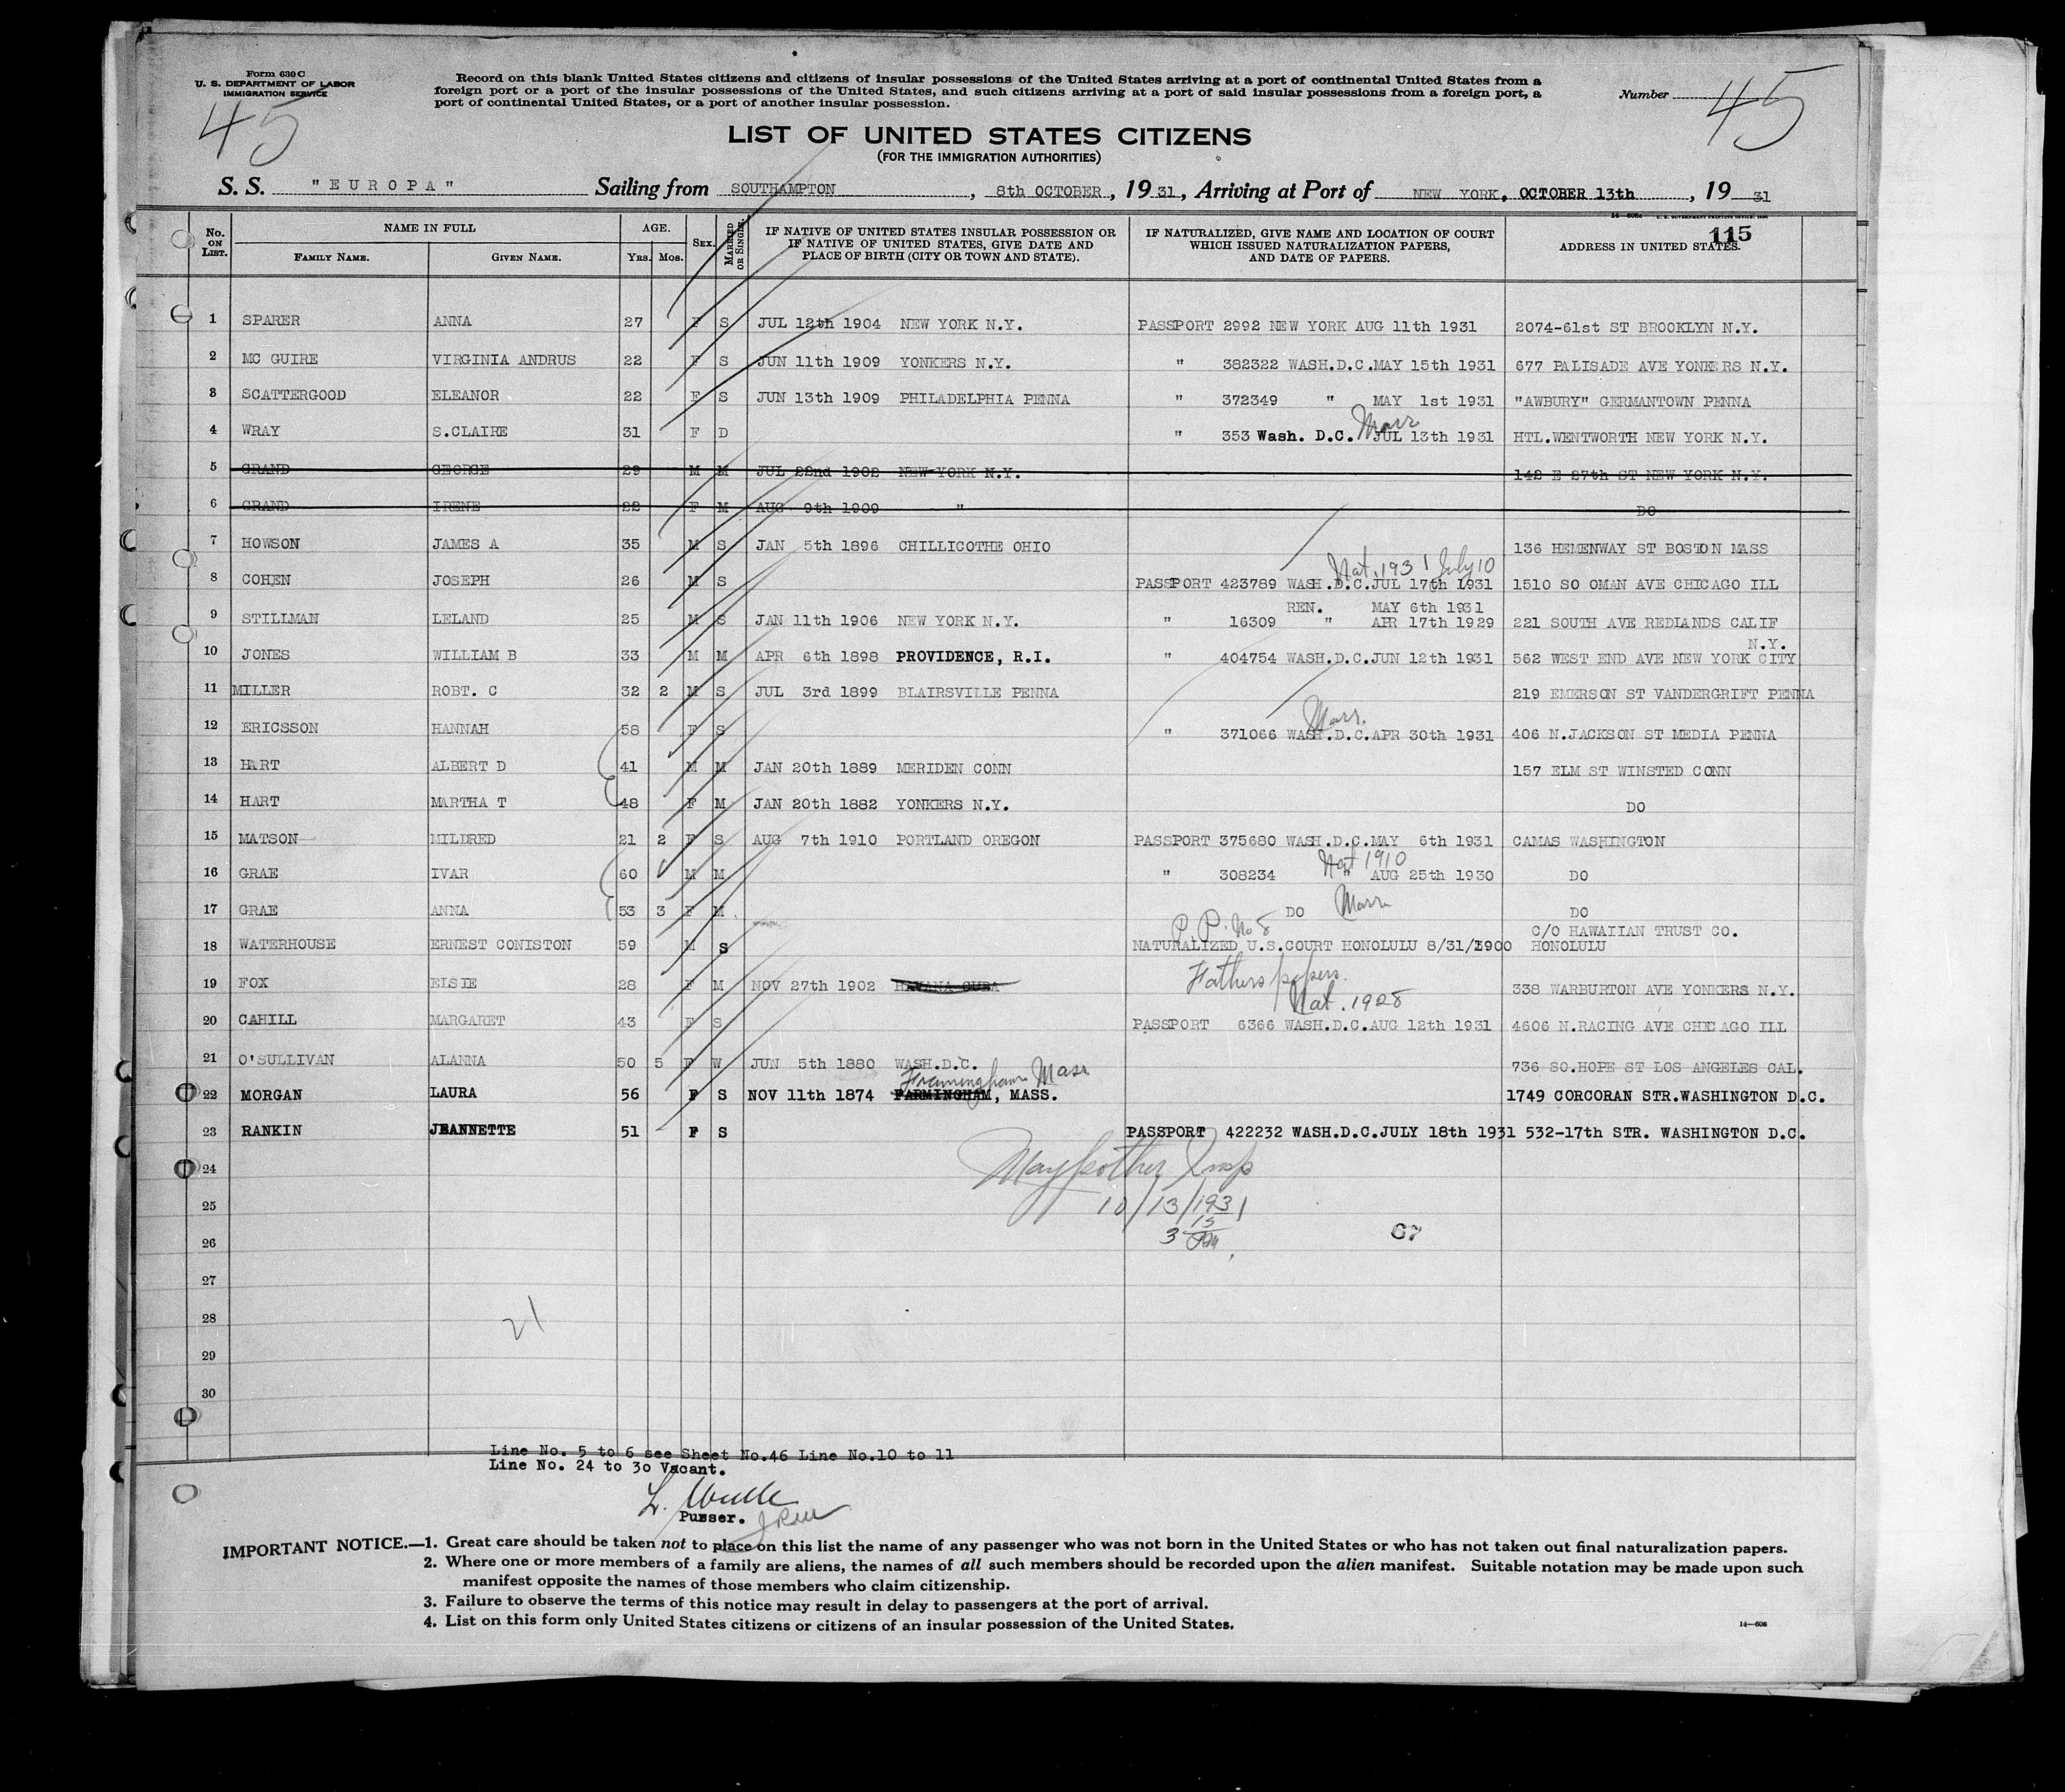 Form 630 C
U. S. DEPARTMENT OF LABOR
IMMIGRATION SERVICE
45
Record on this blank United States citizens and citizens of insular possessions of the United States arriving at a port of continental United States from a
foreign port or a port of the insular possessions of the United States, and such citizens arriving at a port of said insular possessions from a foreign port, a
port of continental United States, or a port of another insular possession.
Number 45
LIST OF UNITED STATES CITIZENS
(FOR THE IMMIGRATION AUTHORITIES)
S. S. "EUROPA" Sailing from SOUTHAMPTON, 8th OCTOBER, 1931, Arriving at Port of NEW YORK, OCTOBER 13th, 1931
115
No. ON LIST. NAME IN FULL FAMILY NAME. GIVEN NAME. AGE. Yrs. Mos. SEX. MARRIED OR SINGLE. IF NATIVE OF UNITED STATES INSULAR POSSESSION OR IF NATIVE OF UNITED STATES, GIVE DATE AND PLACE OF BIRTH (CITY OR TOWN AND STATE). IF NATURALIZED, GIVE NAME AND LOCATION OF COURT WHICH ISSUED NATURALIZATION PAPERS, AND DATE OF PAPERS. ADDRESS IN UNITED STATES.
1 SPARER ANNA 27 F S JUL 12th 1904 NEW YORK N.Y. PASSPORT 2992 NEW YORK AUG 11th 1931 2074-61st ST BROOKLYN N.Y.
2 MC GUIRE VIRGINIA ANDRUS 22 F S JUN 11th 1909 YONKERS N.Y. " 382322 WASH.D.C.MAY 15th 1931 677 PALISADE AVE YONKERS N.Y.
3 SCATTERGOOD ELEANOR 22 F S JUN 13th 1909 PHILADELPHIA PENNA " 372349 " MAY 1st 1931 "AWBURY" GERMANTOWN PENNA
Marr
4 WRAY S.CLAIRE 31 F D " 353 Wash. D.C. JUL 13th 1931 HTL.WENTWORTH NEW YORK N.Y.
5 GRAND GEORGE 29 M M JUL 22nd 1902 NEW YORK N.Y. 142 E 27th ST NEW YORK N.Y.
6 GRAND IRENE 22 F M AUG 9th 1909 " DO
7 HOWSON JAMES A 35 M S JAN 5th 1896 CHILLICOTHE OHIO 136 HEMENWAY ST BOSTON MASS
Nat. 1931 July 10
8 COHEN JOSEPH 26 M S PASSPORT 423789 WASH.D.C.JUL 17th 1931 1510 SO OMAN AVE CHICAGO ILL
REN. MAY 6th 1931
9 STILLMAN LELAND 25 M S JAN 11th 1906 NEW YORK N.Y. " 16309 " APR 17th 1929 221 SOUTH AVE REDLANDS CALIF
N.Y.
10 JONES WILLIAM B 33 M M APR 6th 1898 PROVIDENCE, R.I. " 404754 WASH.D.C.JUN 12th 1931 562 WEST END AVE NEW YORK CITY
11 MILLER ROBT. C 32 2 M S JUL 3rd 1899 BLAIRSVILLE PENNA 219 EMERSON ST VANDERGRIFT PENNA
Marr.
12 ERICSSON HANNAH 58 F S " 371066 WASH.D.C.APR 30th 1931 406 N.JACKSON ST MEDIA PENNA
13 HART ALBERT D 41 M M JAN 20th 1889 MERIDEN CONN 157 ELM ST WINSTED CONN
14 HART MARTHA T 48 F M JAN 20th 1882 YONKERS N.Y. DO
15 MATSON MILDRED 21 2 F S AUG 7th 1910 PORTLAND OREGON PASSPORT 375680 WASH.D.C.MAY 6th 1931 CAMAS WASHINGTON
Nat 1910
16 GRAE IVAR 60 M M " 308234 " AUG 25th 1930 DO
17 GRAE ANNA 53 3 F M DO Marr DO
P.P. No 8 C/O HAWAIIAN TRUST CO.
18 WATERHOUSE ERNEST CONISTON 59 M S NATURALIZED U.S.COURT HONOLULU 8/31/1900 HONOLULU
Fathers papers.
19 FOX ELSIE 28 F M NOV 27th 1902 HAVANA CUBA 338 WARBURTON AVE YONKERS N.Y.
Nat. 1928
20 CAHILL MARGARET 43 F S PASSPORT 6366 WASH.D.C.AUG 12th 1931 4606 N.RACING AVE CHICAGO ILL
21 O'SULLIVAN ALANNA 50 5 F W JUN 5th 1880 WASH.D.C. 736 SO.HOPE ST LOS ANGELES CAL.
Framingham Mass
22 MORGAN LAURA 56 F S NOV 11th 1874 FARMINGHAM, MASS. 1749 CORCORAN STR.WASHINGTON D.C.
23 RANKIN JEANNETTE 51 F S PASSPORT 422232 WASH.D.C.JULY 18th 1931 532-17th STR. WASHINGTON D.C.
24
Insp
25 10/13/1931
15
26 3 PM. 67
27
28 21
29
30
Line No. 5 to 6 see Sheet No.46 Line No.10 to 11
Line No. 24 to 30 Vacant.
L.
Purser.
IMPORTANT NOTICE.—1. Great care should be taken not to place on this list the name of any passenger who was not born in the United States or who has not taken out final naturalization papers.
2. Where one or more members of a family are aliens, the names of all such members should be recorded upon the alien manifest. Suitable notation may be made upon such
manifest opposite the names of those members who claim citizenship.
3. Failure to observe the terms of this notice may result in delay to passengers at the port of arrival.
4. List on this form only United States citizens or citizens of an insular possession of the United States.
14—606